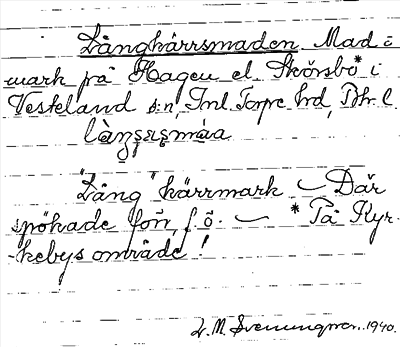 Långkärrsmaden. Mad o
mark på Hagen el. Skörsbo* i
Veskeland s:n, Inl. Torpe hrd, Bhr. l.
"Lång" kärrmark ~ Där
spökade förr f. ö. ~ * På Kyr-
kebys område!
L. M. Svenungsson. 1940.